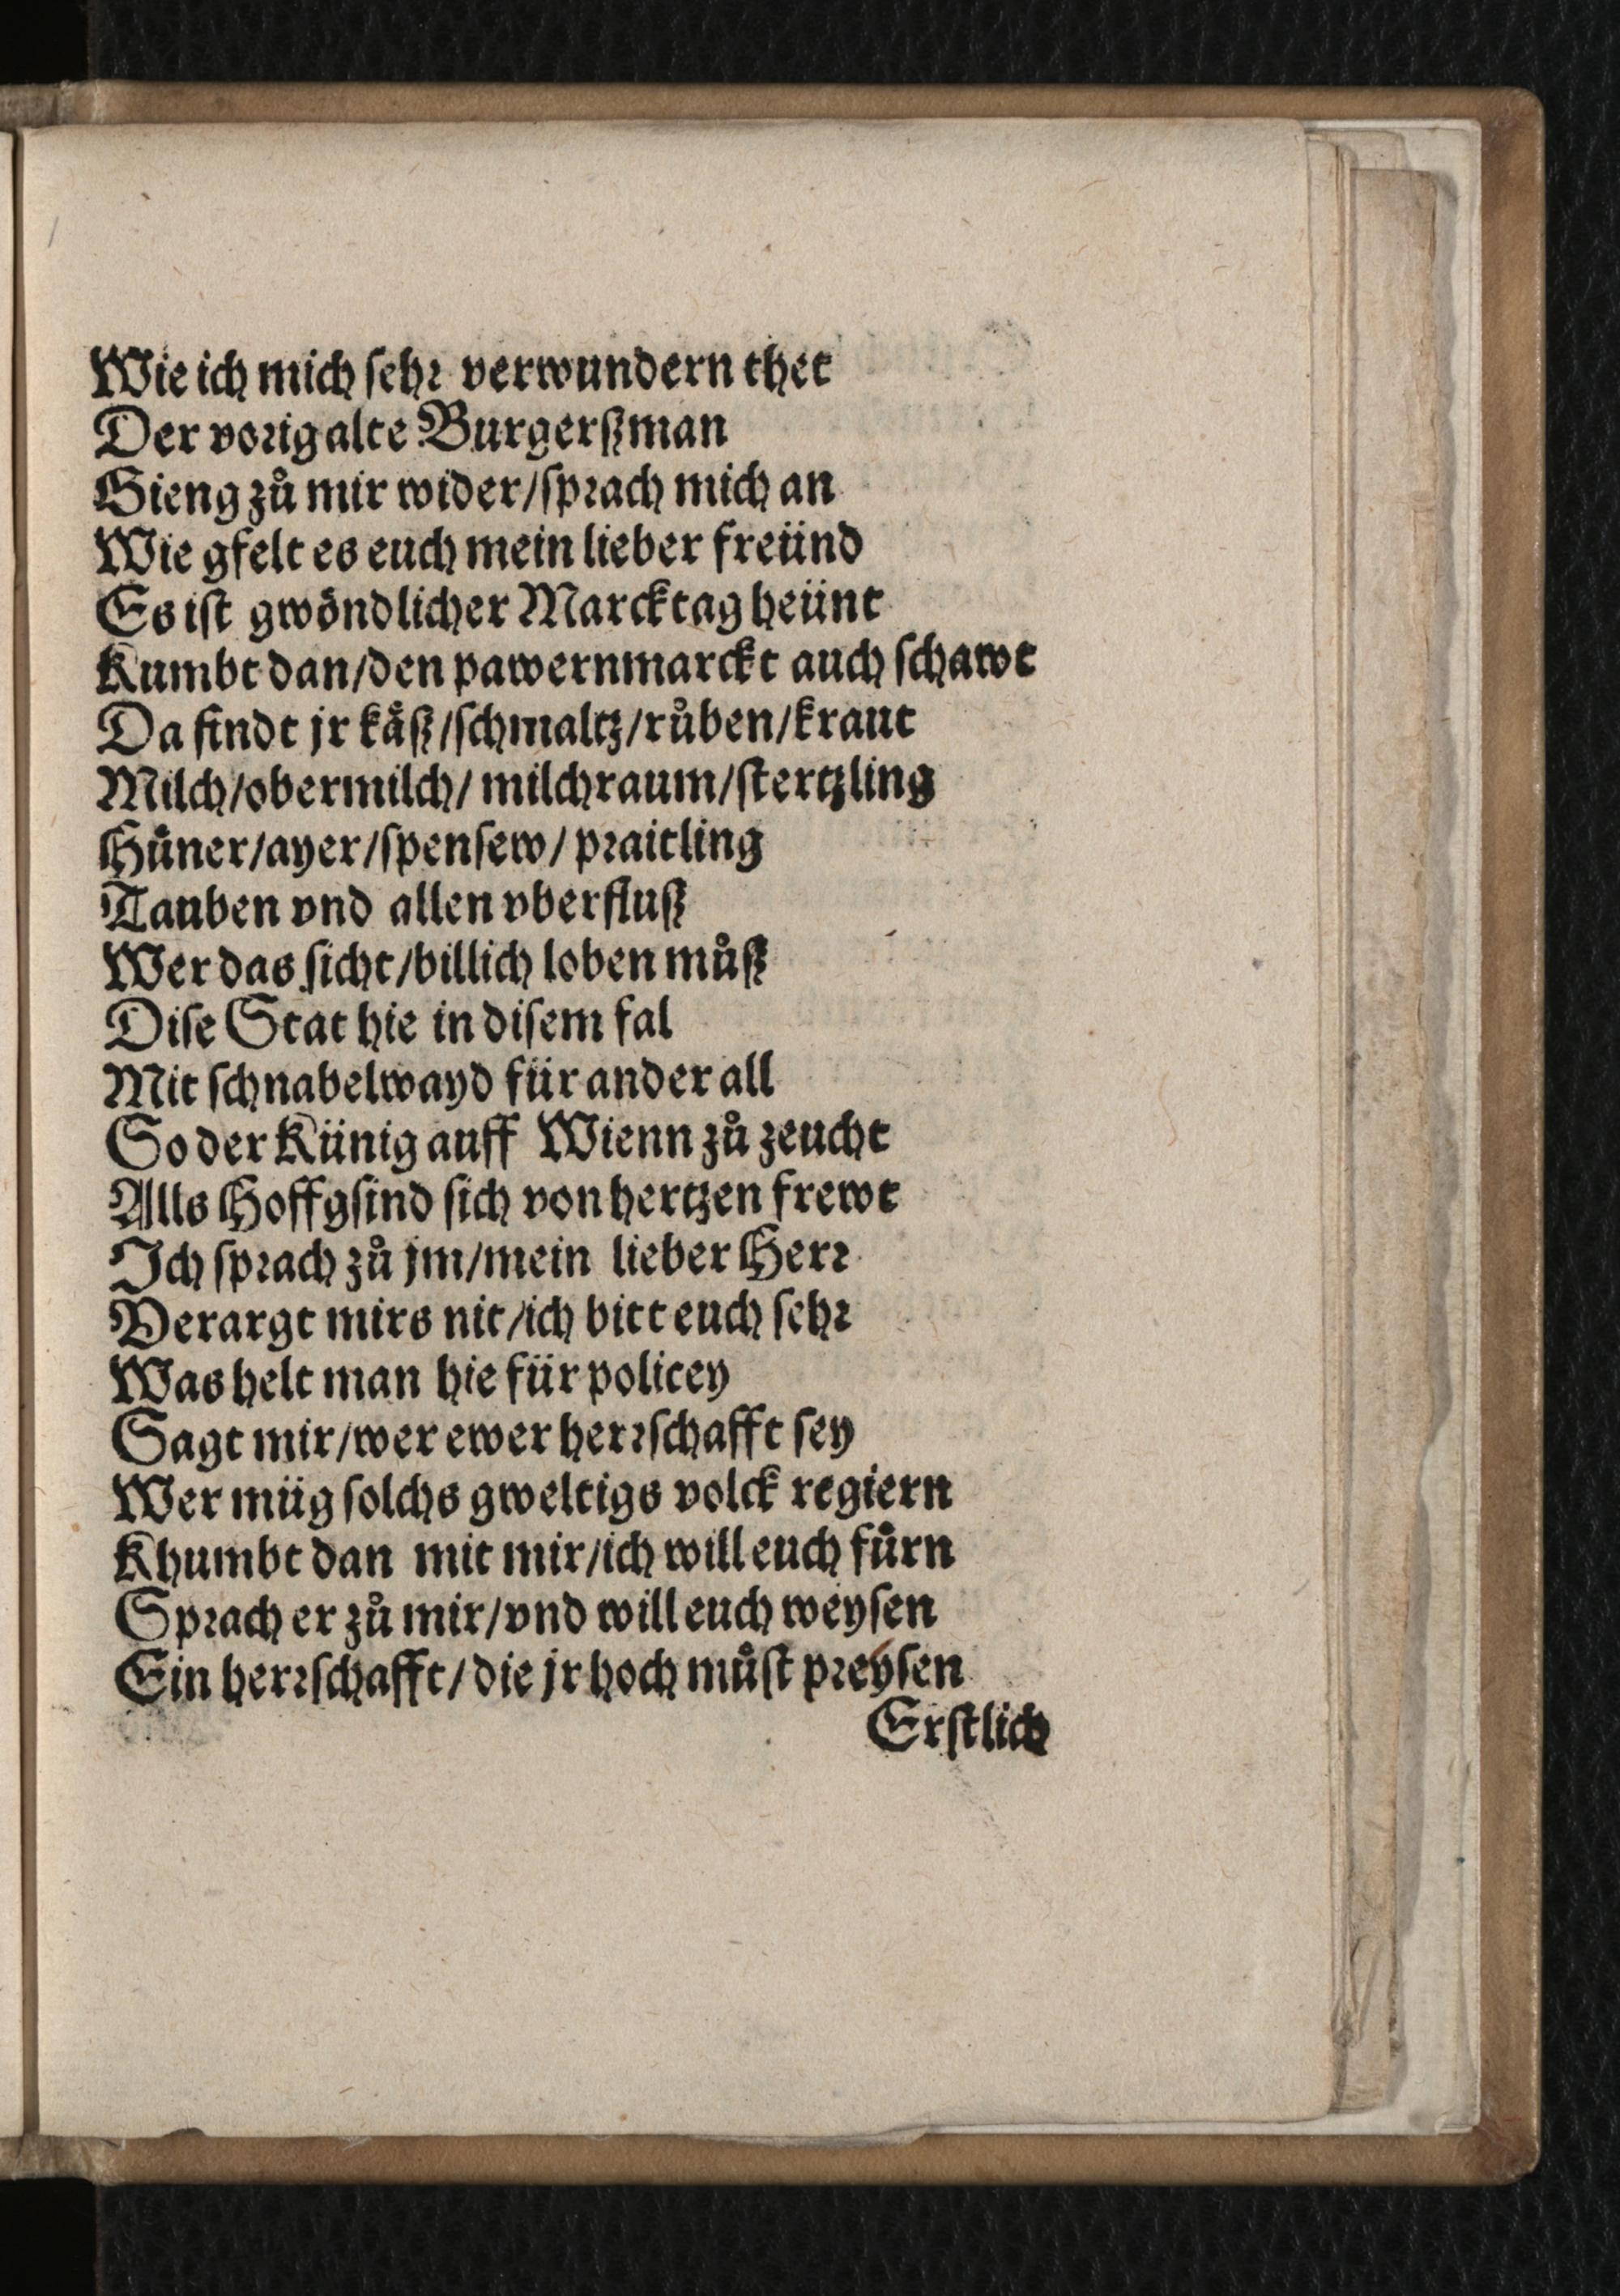 Wie ich mich ſehꝛ verwundern thet
Der voꝛig alte Burgerſzman
Gieng zů mir wider/ſpꝛach mich an
Wie gfelt es euch mein lieber freünd
Es iſt gwöndlicher Marcktag heünt
Kumbt dan/den pawernmarckt auch ſchawt
Da findt jr käſz/ſchmaltz/růben/kraut
Milch/obermilch/ milchraum/ſtertzling
Hůner/ayer/ſpenſew/ pꝛaitling
Tauben vnd allen vberfluſz
Wer das ſicht/billich loben můſz
Diſe Stat hie in diſem fal
Mit ſchnabelwayd für ander all
So der Künig auff Wienn zů zeucht
Alls Hoffgſind ſich von hertzen frewt
Ich ſpꝛach zů jm/mein lieber Herꝛ
Verargt mirs nit/ich bitt euch ſehꝛ
Was helt man hie für policey
Sagt mir/wer ewer herꝛſchafft ſey
Wer müg ſolchs gweltigs volck regiern
Khumbt dan mit mir/ich will euch fůrn
Spꝛach er zů mir/vnd will euch weyſen
Ein herꝛſchafft/die jr hoch můſt pꝛeyſen
Erſtlich